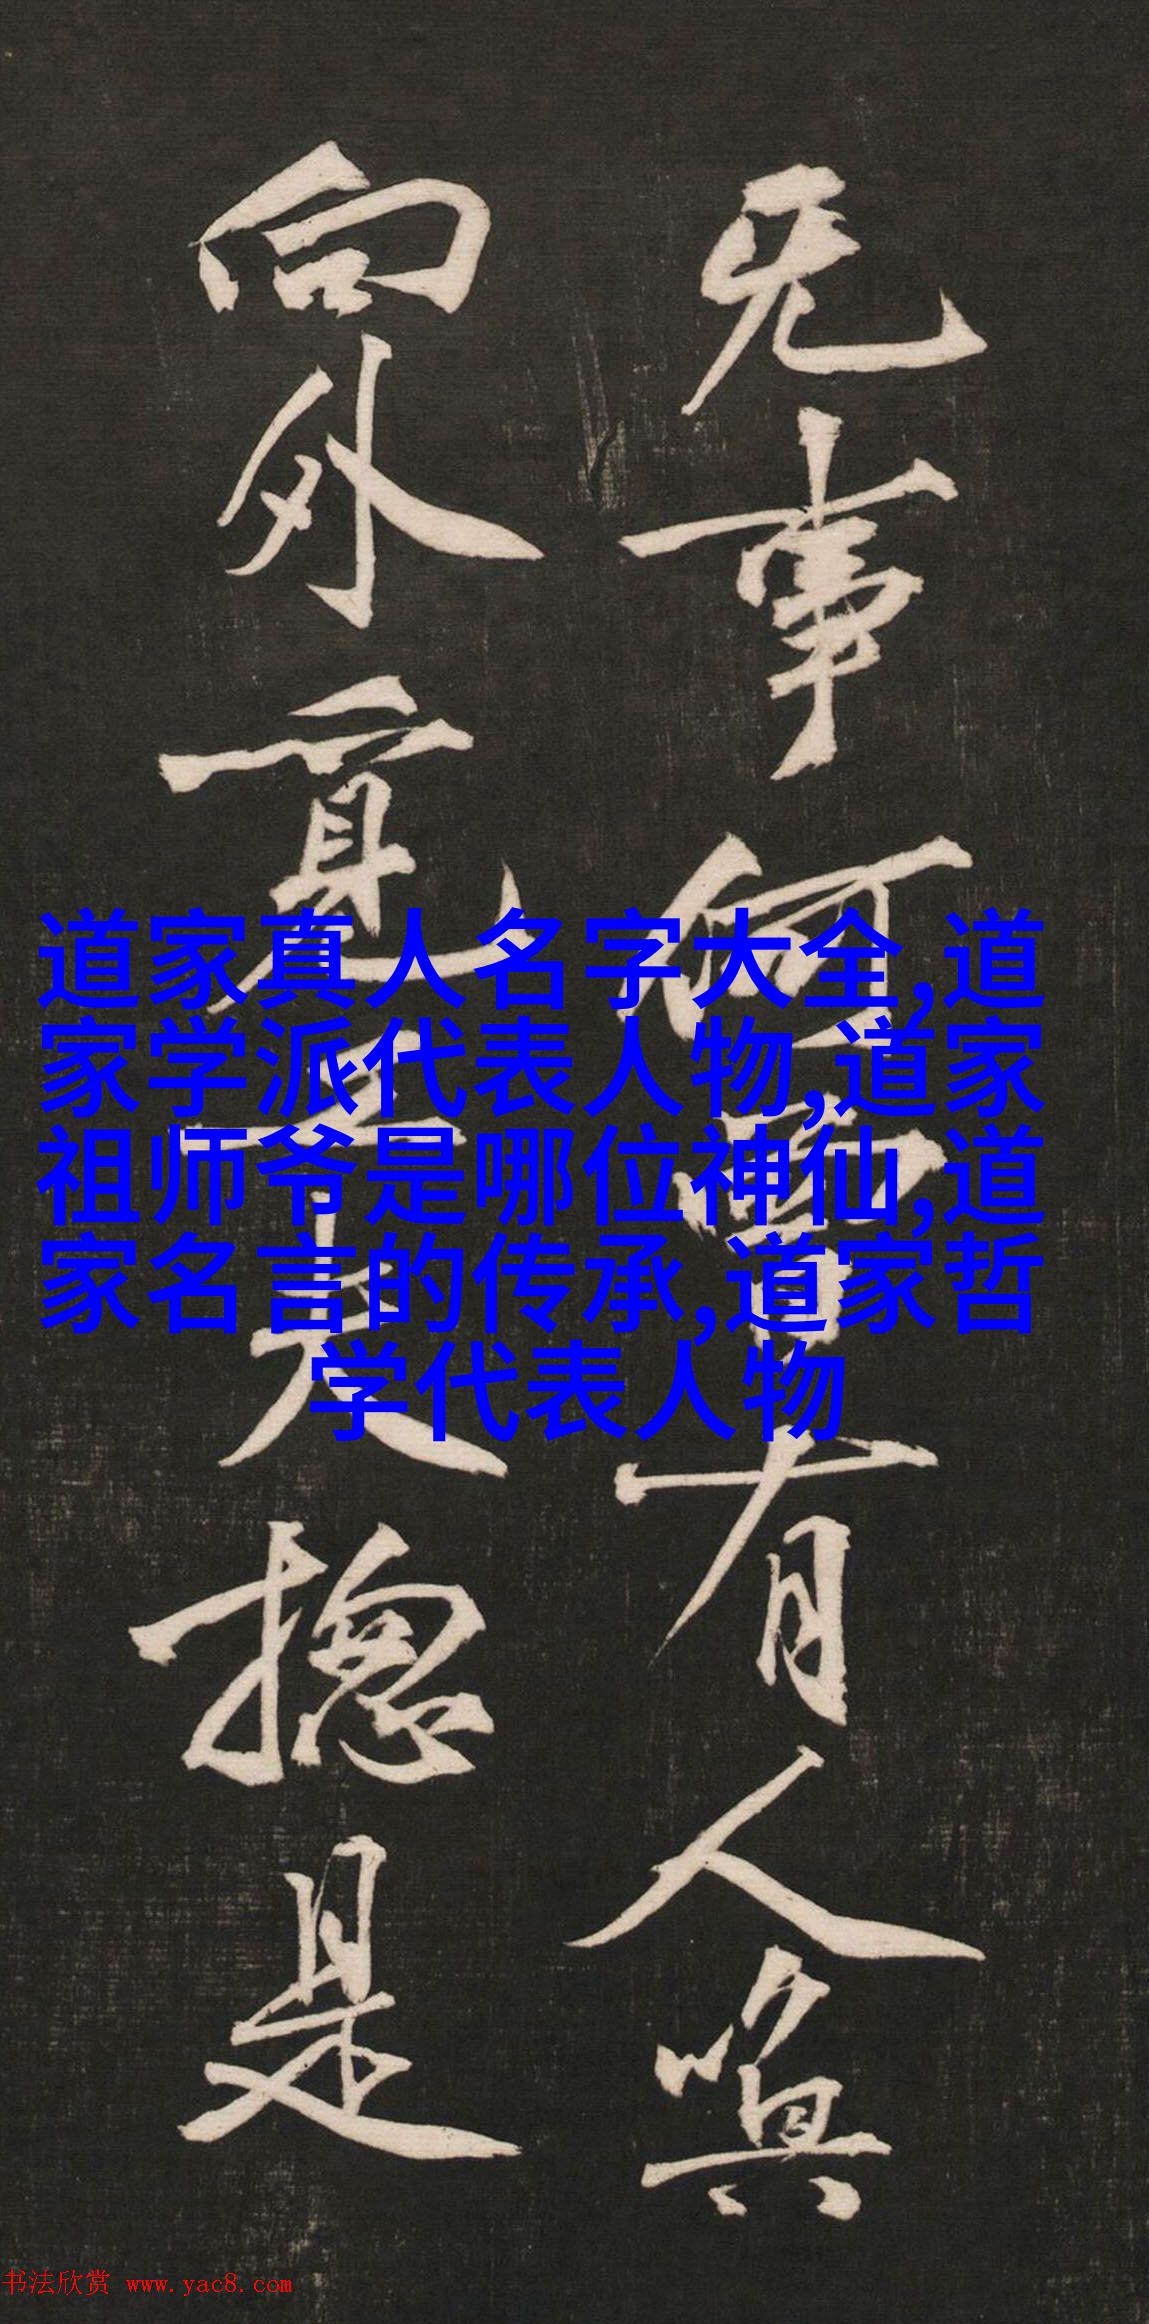 无事何有人喚
向外覓工夫捴是
道家真人名字大全,道
家学派代表人物,道家
祖师爷是哪位神仙,道
家名言的传承,道家哲
学代表人物
书法欣赏 www.yac8.com